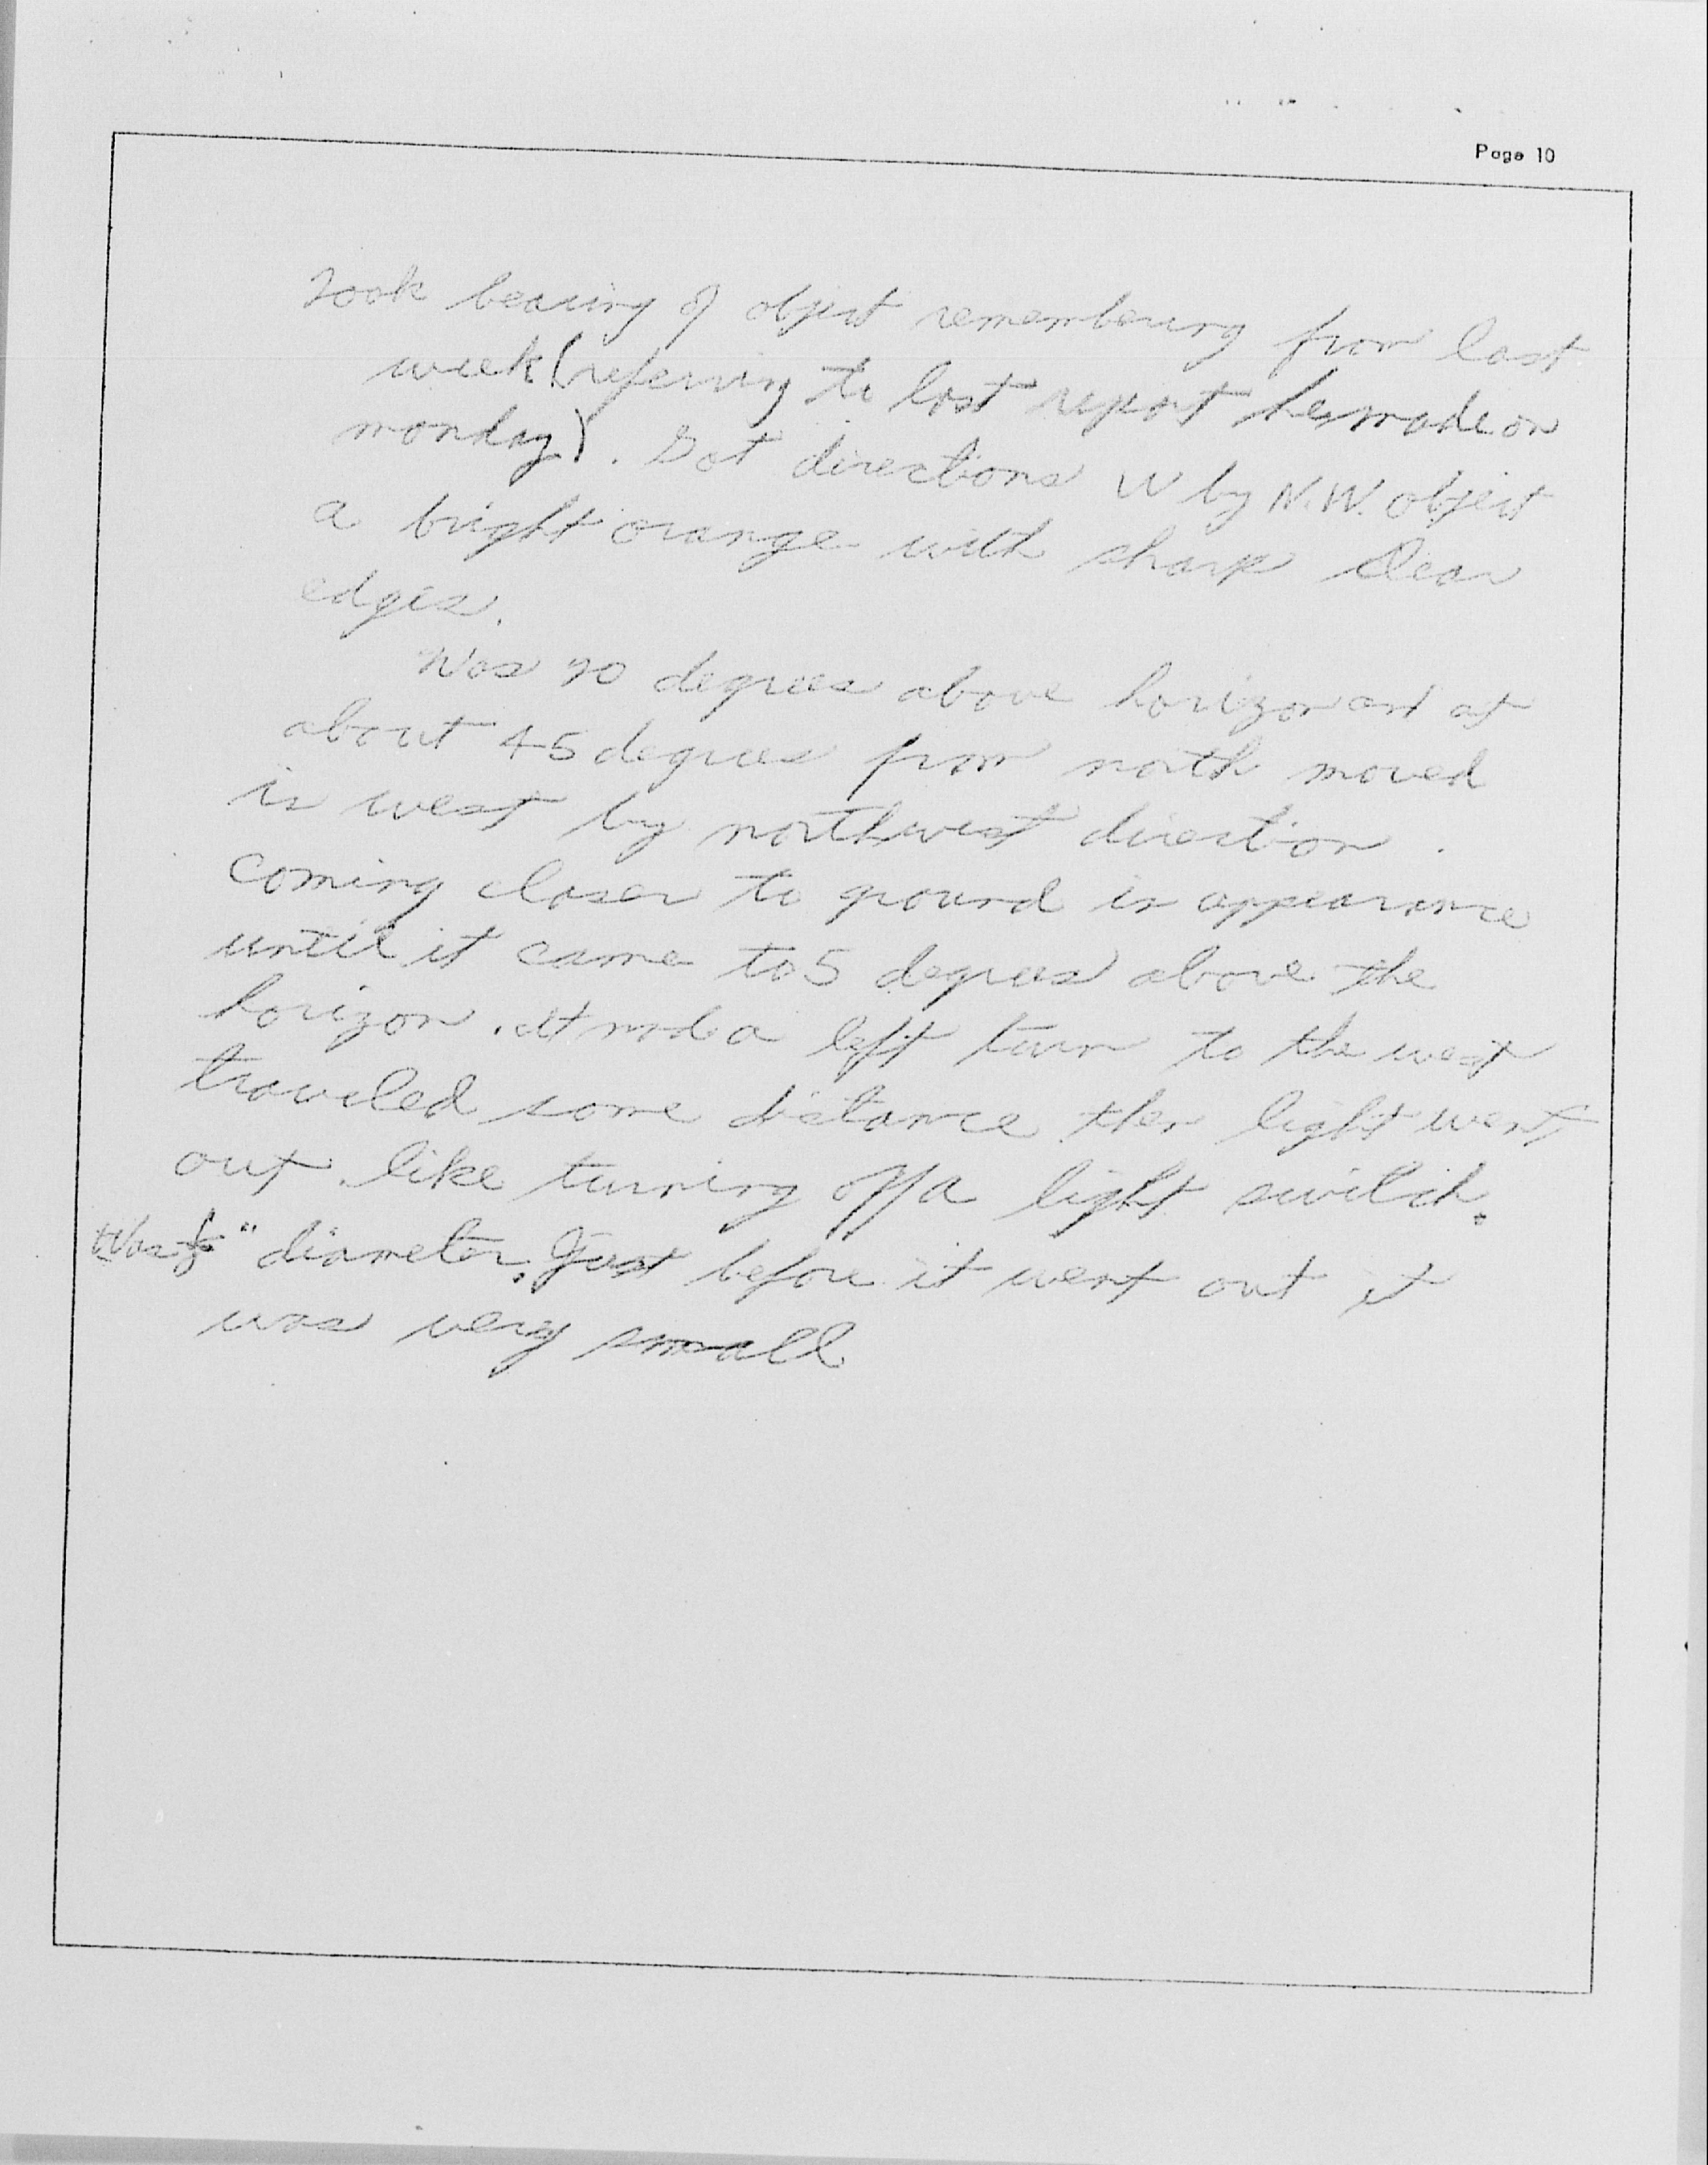 Page 10
Took bearing of object remembering from last
week (referring to last report he made on
monday). Got directions W by N.W. object
a bright orange with sharp clear
edges.
Was 70 degrees above horizon and at
about 45 degrees from north moved
in west by northwest direction.
coming closer to ground in appearance
until it came to 5 degrees above the
horizon. It made a left turn to the west
traveled some distance then light went
out like turning off a light switch.
Was " diameter. Just before it went out it
was very small